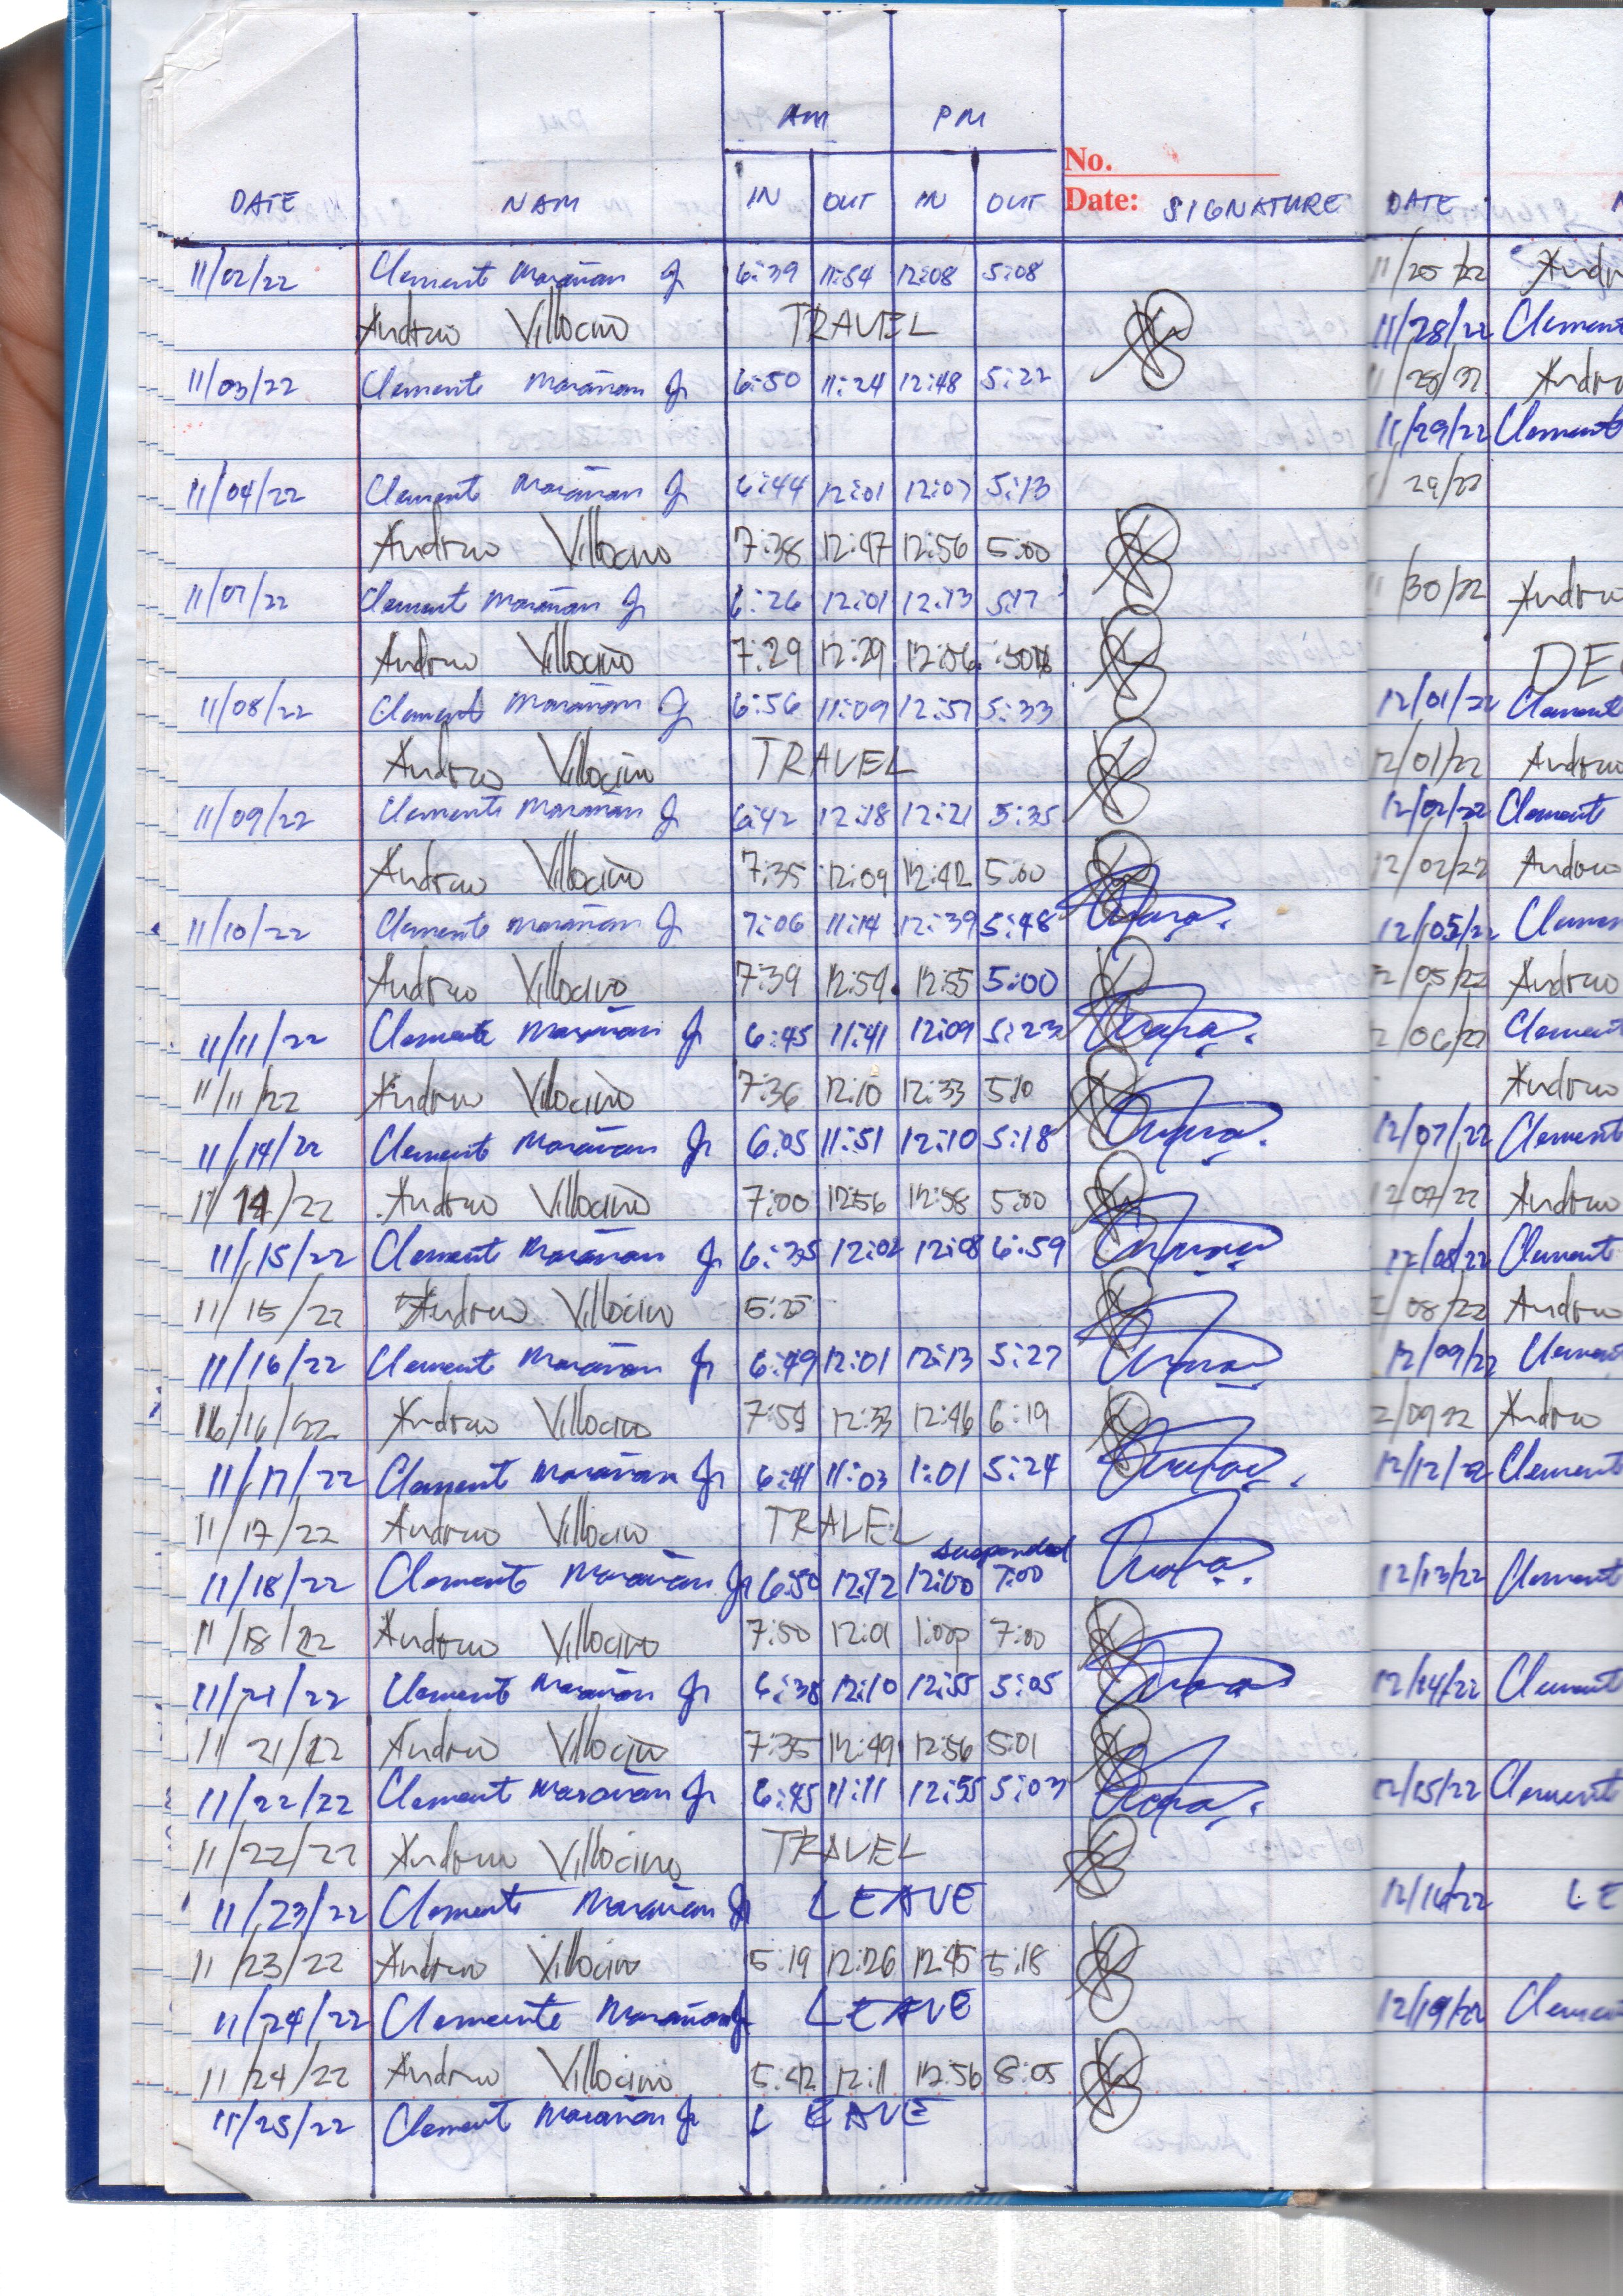 AM PM
No.
DATE NAM IN OUT IN OUT Date: SIGNATURE
11/02/22 Clement Marañan Jr 6:39 11:54 12:08 5:08
Andrew Villocino TRAVEL
11/03/22 Clemente Marañan Jr 6:50 11:24 12:48 5:22
11/04/22 Clement Marañan Jr 6:44 12:01 12:07 5:13
Andrew Villocino 7:38 12:47 12:56 5:00
11/07/22 Clement Marañan Jr 6:26 12:01 12:13 5:17
Andrew Villocino 7:29 12:29 12:56
11/08/22 Clement Marañan Jr 6:56 11:09 12:57 5:33
Andrew Villocino TRAVEL
11/09/22 Clemente Marañan Jr 6:42 12:18 12:21 5:35
Andrew Villocino 7:35 12:09 12:42 5:00
11/10/22 Clemente Marañan Jr 7:06 11:14 12:39 5:48
Andrew Villocino 7:39 12:54 12:55 5:00
11/11/22 Clemente Marañan Jr 6:45 11:41 12:09 5:23
11/11/22 Andrew Villocino 7:36 12:10 12:33 5:10
11/14/22 Clement Marañan Jr 6:05 11:51 12:10 5:18
11/14/22 Andrew Villocino 7:00 12:56 12:58 5:00
11/15/22 Clement Marañan Jr 6:35 12:02 12:08 6:59
11/15/22 Andrew Villocino 5:25
11/16/22 Clement Marañan Jr 6:49 12:01 12:13 5:27
16/16/22 Andrew Villocino 7:59 12:33 12:46 6:19
11/17/22 Clement Marañan Jr 6:41 11:03 1:01 5:24
11/17/22 Andrew Villocino TRAVEL
suspended
11/18/22 Clemente Marañan Jr 6:50 12:12 12:00 7:00
11/18/22 Andrew Villocino 7:50 12:01 1:00p 7:00
11/21/22 Clement Marañan Jr 6:38 12:10 12:55 5:05
11/21/22 Andrew Villocino 7:35 12:49 12:56 5:01
11/22/22 Clement Marañan Jr 6:45 11:11 12:55 5:03
11/22/22 Andrew Villocino TRAVEL
11/23/22 Clemente Marañan Jr LEAVE
11/23/22 Andrew Villocino 5:19 12:26 12:45 5:18
11/24/22 Clemente Marañan Jr LEAVE
11/24/22 Andrew Villocino 5:42 12:11 12:56 8:05
11/25/22 Clement Marañan Jr LEAVE
DATE
11/25/22 Andr
11/28/22 Clemen
11/28/22 Andr
11/29/22 Clement
29/22
11/30/22 Andrew
DE
12/01/22 Clement
12/01/22 Andrew
12/02/22 Clemente
12/02/22 Andrew
12/05/22 Clemen
2/05/22 Andrew
2/06/22 Clement
Andrew
12/07/22 Clement
12/07/22 Andrew
12/08/22 Clement
2/08/22 Andrew
12/09/22 Clemen
2/09 22 Andrew
12/12/22 Clement
12/13/22 Clement
12/14/22 Clement
12/15/22 Clement
12/16/22 LE
12/19/22 Clemen